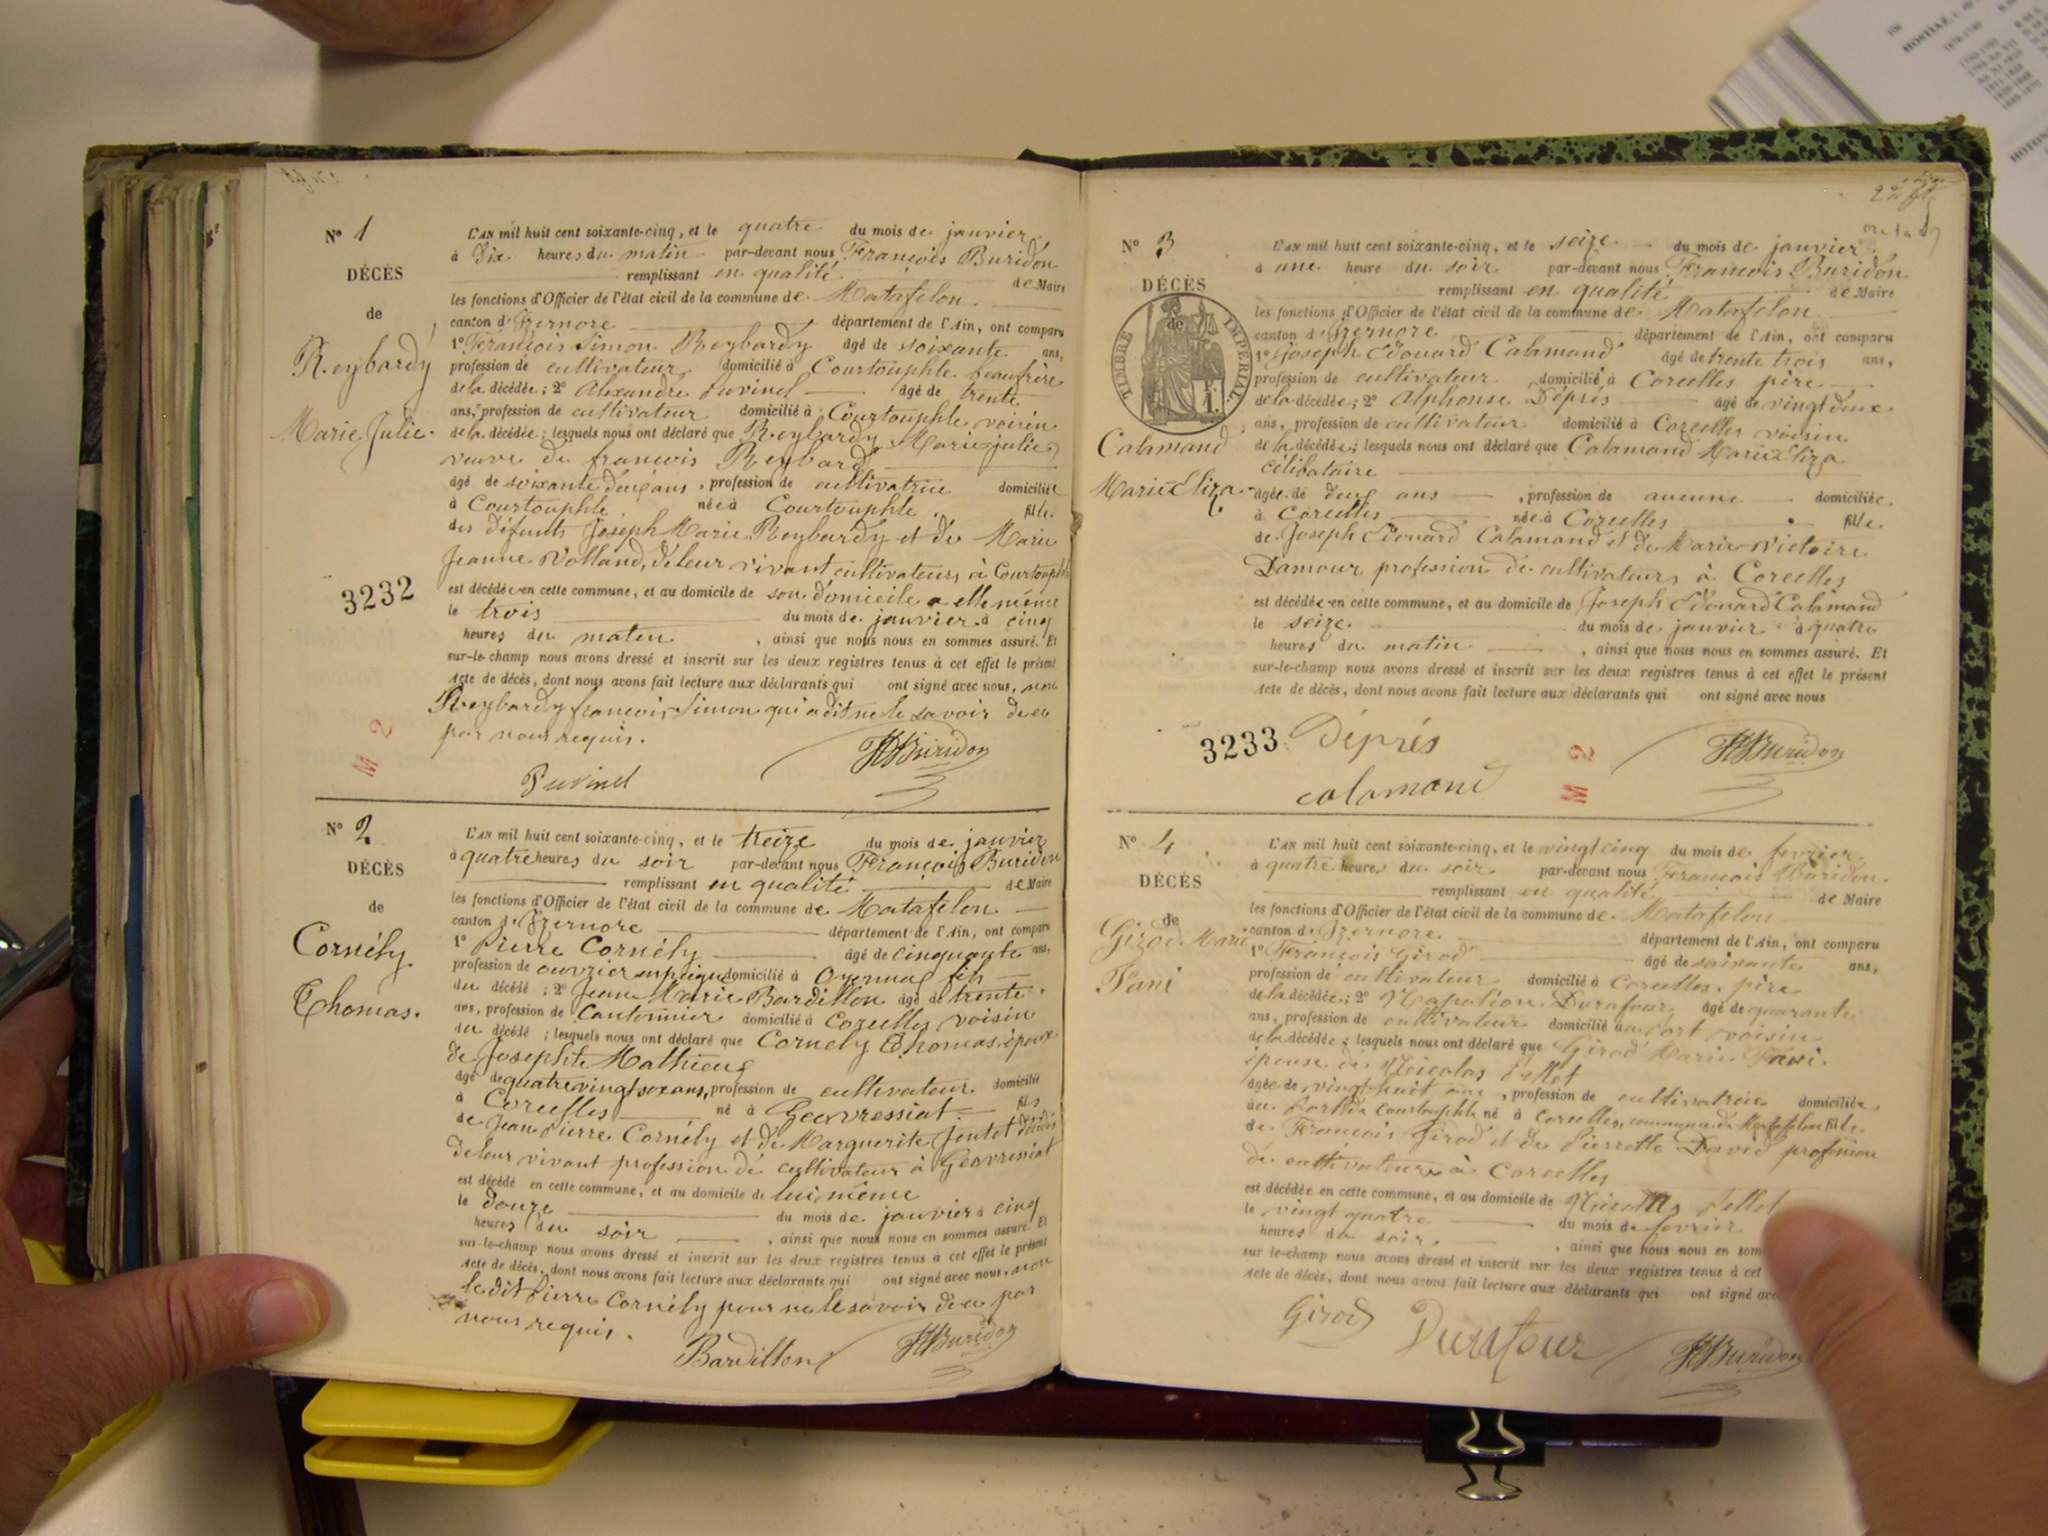 N° 1
DÉCÈS
de
Reybardy
Marie Julie.
3232
M 2
L'AN mil huit cent soixante-cinq, et le quatre du mois de janvier
à dix heures du matin par-devant nous François Buridon
remplissant en qualité de Maire
les fonctions d'Officier de l'état civil de la commune de Matafelon
canton d'Izernore département de l'Ain, ont comparu
1° François Simon Reybardy âgé de soixante ans,
profession de cultivateur domicilié à Courtouphle beaufrère
de la décédée; 2° Alexandre Puvinel âgé de trente
ans, profession de cultivateur domicilié à Courtouphle voisin
de la décédée; lesquels nous ont déclaré que Reybardy Marie julie
veuve de françois Reybard
âgé de soixante deux ans, profession de cultivatrice domiciliée
à Courtouphle née à Courtouphle fille
des défunts Joseph Marie Reybardy et de Marie
Jeanne Volland, de leur vivant cultivateurs à Courtouphle
est décédée en cette commune, et au domicile de son domicile a elle même
le trois du mois de janvier à cinq
heures du matin, ainsi que nous nous en sommes assuré. Et
sur-le-champ nous avons dressé et inscrit sur les deux registres tenus à cet effet le présent
acte de décès, dont nous avons fait lecture aux déclarants qui ont signé avec nous, non
Reybardy françois Simon qui a dit ne le savoir de ce
par nous requis.
Puvinel
Buridon
N° 2
DÉCÈS
de
Cornély
Thomas.
L'AN mil huit cent soixante-cinq, et le treize du mois de janvier
à quatre heures du soir par-devant nous François Buridon
remplissant en qualité de Maire
les fonctions d'Officier de l'état civil de la commune de Matafelon
canton d'Izernore département de l'Ain, ont comparu
1° Pierre Cornély âgé de cinquante ans,
profession de ouvrier en peignes domicilié à Oyonnax fils
du décédé; 2° Jean Marie Bardillon âgé de trente
ans, profession de Cantonnier domicilié à Corcelles voisin
du décédé; lesquels nous ont déclaré que Cornély Thomas époux
de Josephte Mathieux
âgé de quatre vingt six ans, profession de cultivateur domicilié
à Corcelles né à Géovressiat fils
de Jean Pierre Cornély et de Marguerite Jentet décédés
de leur vivant profession de cultivateur à Géovressiat
est décédé en cette commune, et au domicile de lui même
le douze du mois de janvier à cinq
heures du soir, ainsi que nous nous en sommes assuré. Et
sur-le-champ nous avons dressé et inscrit sur les deux registres tenus à cet effet le présent
acte de décès, dont nous avons fait lecture aux déclarants qui ont signé avec nous, non
le dit Pierre Cornély pour ne le savoir de ce par
nous requis.
Bardillon
Buridon
N° 3
DÉCÈS
de
TIMBRE IMPÉRIAL
Calamand
Marie Eliza
L'AN mil huit cent soixante-cinq, et le seize du mois de janvier
à une heure du soir par-devant nous François Buridon
remplissant en qualité de Maire
les fonctions d'Officier de l'état civil de la commune de Matafelon
canton d'Izernore département de l'Ain, ont comparu
1° Joseph Edouard Calamand âgé de trente trois ans,
profession de cultivateur domicilié à Corcelles père
de la décédée; 2° Alphonse Déprés âgé de vingt deux
ans, profession de cultivateur domicilié à Corcelles voisin
de la décédée; lesquels nous ont déclaré que Calamand Marie Eliza
célibataire
âgée de deux ans, profession de aucune domiciliée
à Corcelles née à Corcelles fille
de Joseph Edouard Calamand et de Marie Victoire
Damour profession de cultivateurs à Corcelles
est décédée en cette commune, et au domicile de Joseph Edouard Calamand
le seize du mois de janvier à quatre
heures du matin, ainsi que nous nous en sommes assuré. Et
sur-le-champ nous avons dressé et inscrit sur les deux registres tenus à cet effet le présent
acte de décès, dont nous avons fait lecture aux déclarants qui ont signé avec nous
3233
Déprés
M 2
Buridon
calamand
N° 4
DÉCÈS
de
Girod Marie
Fani
L'AN mil huit cent soixante-cinq, et le vingt cinq du mois de fevrier
à quatre heures du soir par-devant nous François Buridon
remplissant en qualité de Maire
les fonctions d'Officier de l'état civil de la commune de Matafelon
canton d'Izernore département de l'Ain, ont comparu
1° François Girod âgé de soixante ans,
profession de cultivateur domicilié à Corcelles père
de la décédée; 2° Napoléon Durafour âgé de quarante
ans, profession de cultivateur domicilié au port voisin
de la décédée; lesquels nous ont déclaré que Girod Marie Fani
épouse de Nicolas Pellet
âgée de vingt huit ans, profession de cultivatrice domiciliée
au Port de Courtouphle né à Corcelles, commune de Matafelon fille
de François Girod et de Pierrette David profession
de cultivateurs à Corcelles
est décédée en cette commune, et au domicile de Nicolas Pellet
le vingt quatre du mois de fevrier
heures du soir, ainsi que nous nous en som
sur le-champ nous avons dressé et inscrit sur les deux registres tenus à cet
acte de décès, dont nous avons fait lecture aux déclarants qui ont signé
Girod
Durafour
Buridon